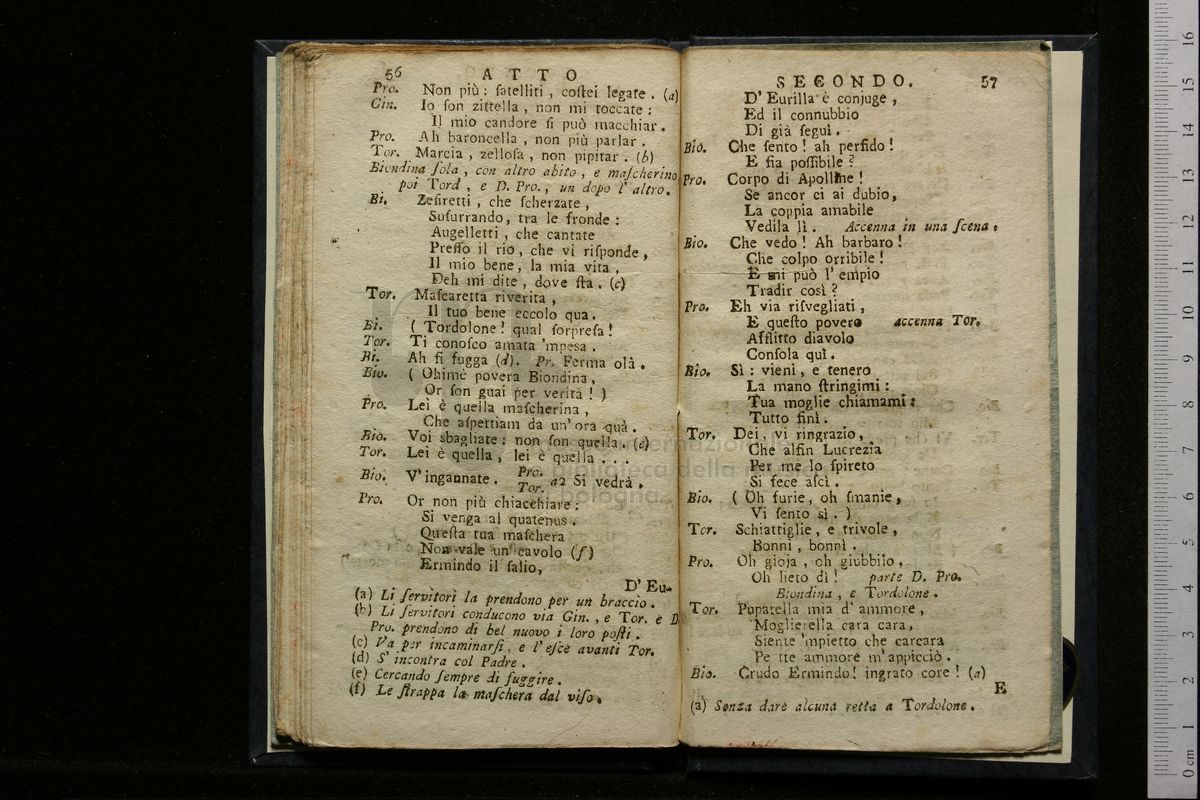 56 ATTO
Pro. Non più: ſatelliti, coſtei legate. (a)
Gin. Io ſon zittella, non mi toccate:
Il mio candore ſi può macchiar.
Pro. Ah baroncella, non più parlar.
Tor. Marcia, zelloſa, non pipitar. (b)
Biondina ſola, con altro abito, e maſcherino
poi Tord, e D. Pro., un dopo l'altro.
Bi. Zefiretti, che ſcherzate,
Suſurrando, tra le fronde:
Augelletti, che cantate
Preſſo il rio, che vi riſponde,
Il mio bene, la mia vita,
Deh mi dite, dove ſta. (c)
Tor. Maſcaretta riverita,
Il tuo bene eccolo qua.
Bi. (Tordolone! qual ſorpreſa!
Tor. Ti conoſco amata 'mpeſa.
Bi. Ah ſi fugga (d). Pr. Ferma olà.
Bio. (Ohimè povera Biondina,
Or ſon guai per verità!)
Pro. Lei è quella maſcherina,
Che aſpettiam da un'ora quà.
Bio. Voi sbagliate: non ſon quella. (e)
Tor. Lei è quella, lei è quella...
Bio. V'ingannate. Pro. Tor. a2 Si vedrà.
Pro. Or non più chiacchiare:
Si venga al quatenus.
Queſta tua maſchera
Non vale un cavolo (f)
Ermindo il ſalio,
D' Eu-
(a) Li ſervitori la prendono per un braccio.
(b) Li ſervitori conducono via Gin., e Tor. e D
Pro. prendono di bel nuovo i loro poſti.
(c) Va per incaminarſi, e l'eſce avanti Tor.
(d) S'incontra col Padre.
(e) Cercando ſempre di fuggire.
(f) Le ſtrappa la maſchera dal viſo.
SECONDO. 57
D'Eurilla è conjuge,
Ed il connubbio
Di già ſeguì.
Bio. Che ſento! ah perfido!
E ſia poſſibile?
Pro. Corpo di Apolline!
Se ancor ci ai dubio,
La coppia amabile
Vedila lì. Accenna in una ſcena.
Bio. Che vedo! Ah barbaro!
Che colpo orribile!
E mi può l'empio
Tradir così?
Pro. Eh via riſvegliati,
E queſto povero accenna Tor.
Afflitto diavolo
Conſola quì.
Bio. Sì: vieni, e tenero
La mano ſtringimi:
Tua moglie chiamami:
Tutto finì.
Tor. Dei, vi ringrazio,
Che alfin Lucrezia
Per me lo ſpireto
Si fece aſcì.
Bio. (Oh furie, oh ſmanie,
Vi ſento sì.)
Tor. Schiattiglie, e trivole,
Bonnì, bonnì.
Pro. Oh gioja, oh giubbilo,
Oh lieto dì! parte D. Pro.
Biondina, e Tordolone.
Tor. Pupatella mia d'ammore,
Moglierella cara cara,
Siente 'mpietto che carcara
Pe tte ammore m'appicciò.
Bio. Crudo Ermindo! ingrato core! (a)
E
(a) Senza dare alcuna retta a Tordolone.
internazionale
biblioteca della musica
bologna
0 cm 1 2 3 4 5 6 7 8 9 10 11 12 13 14 15 16